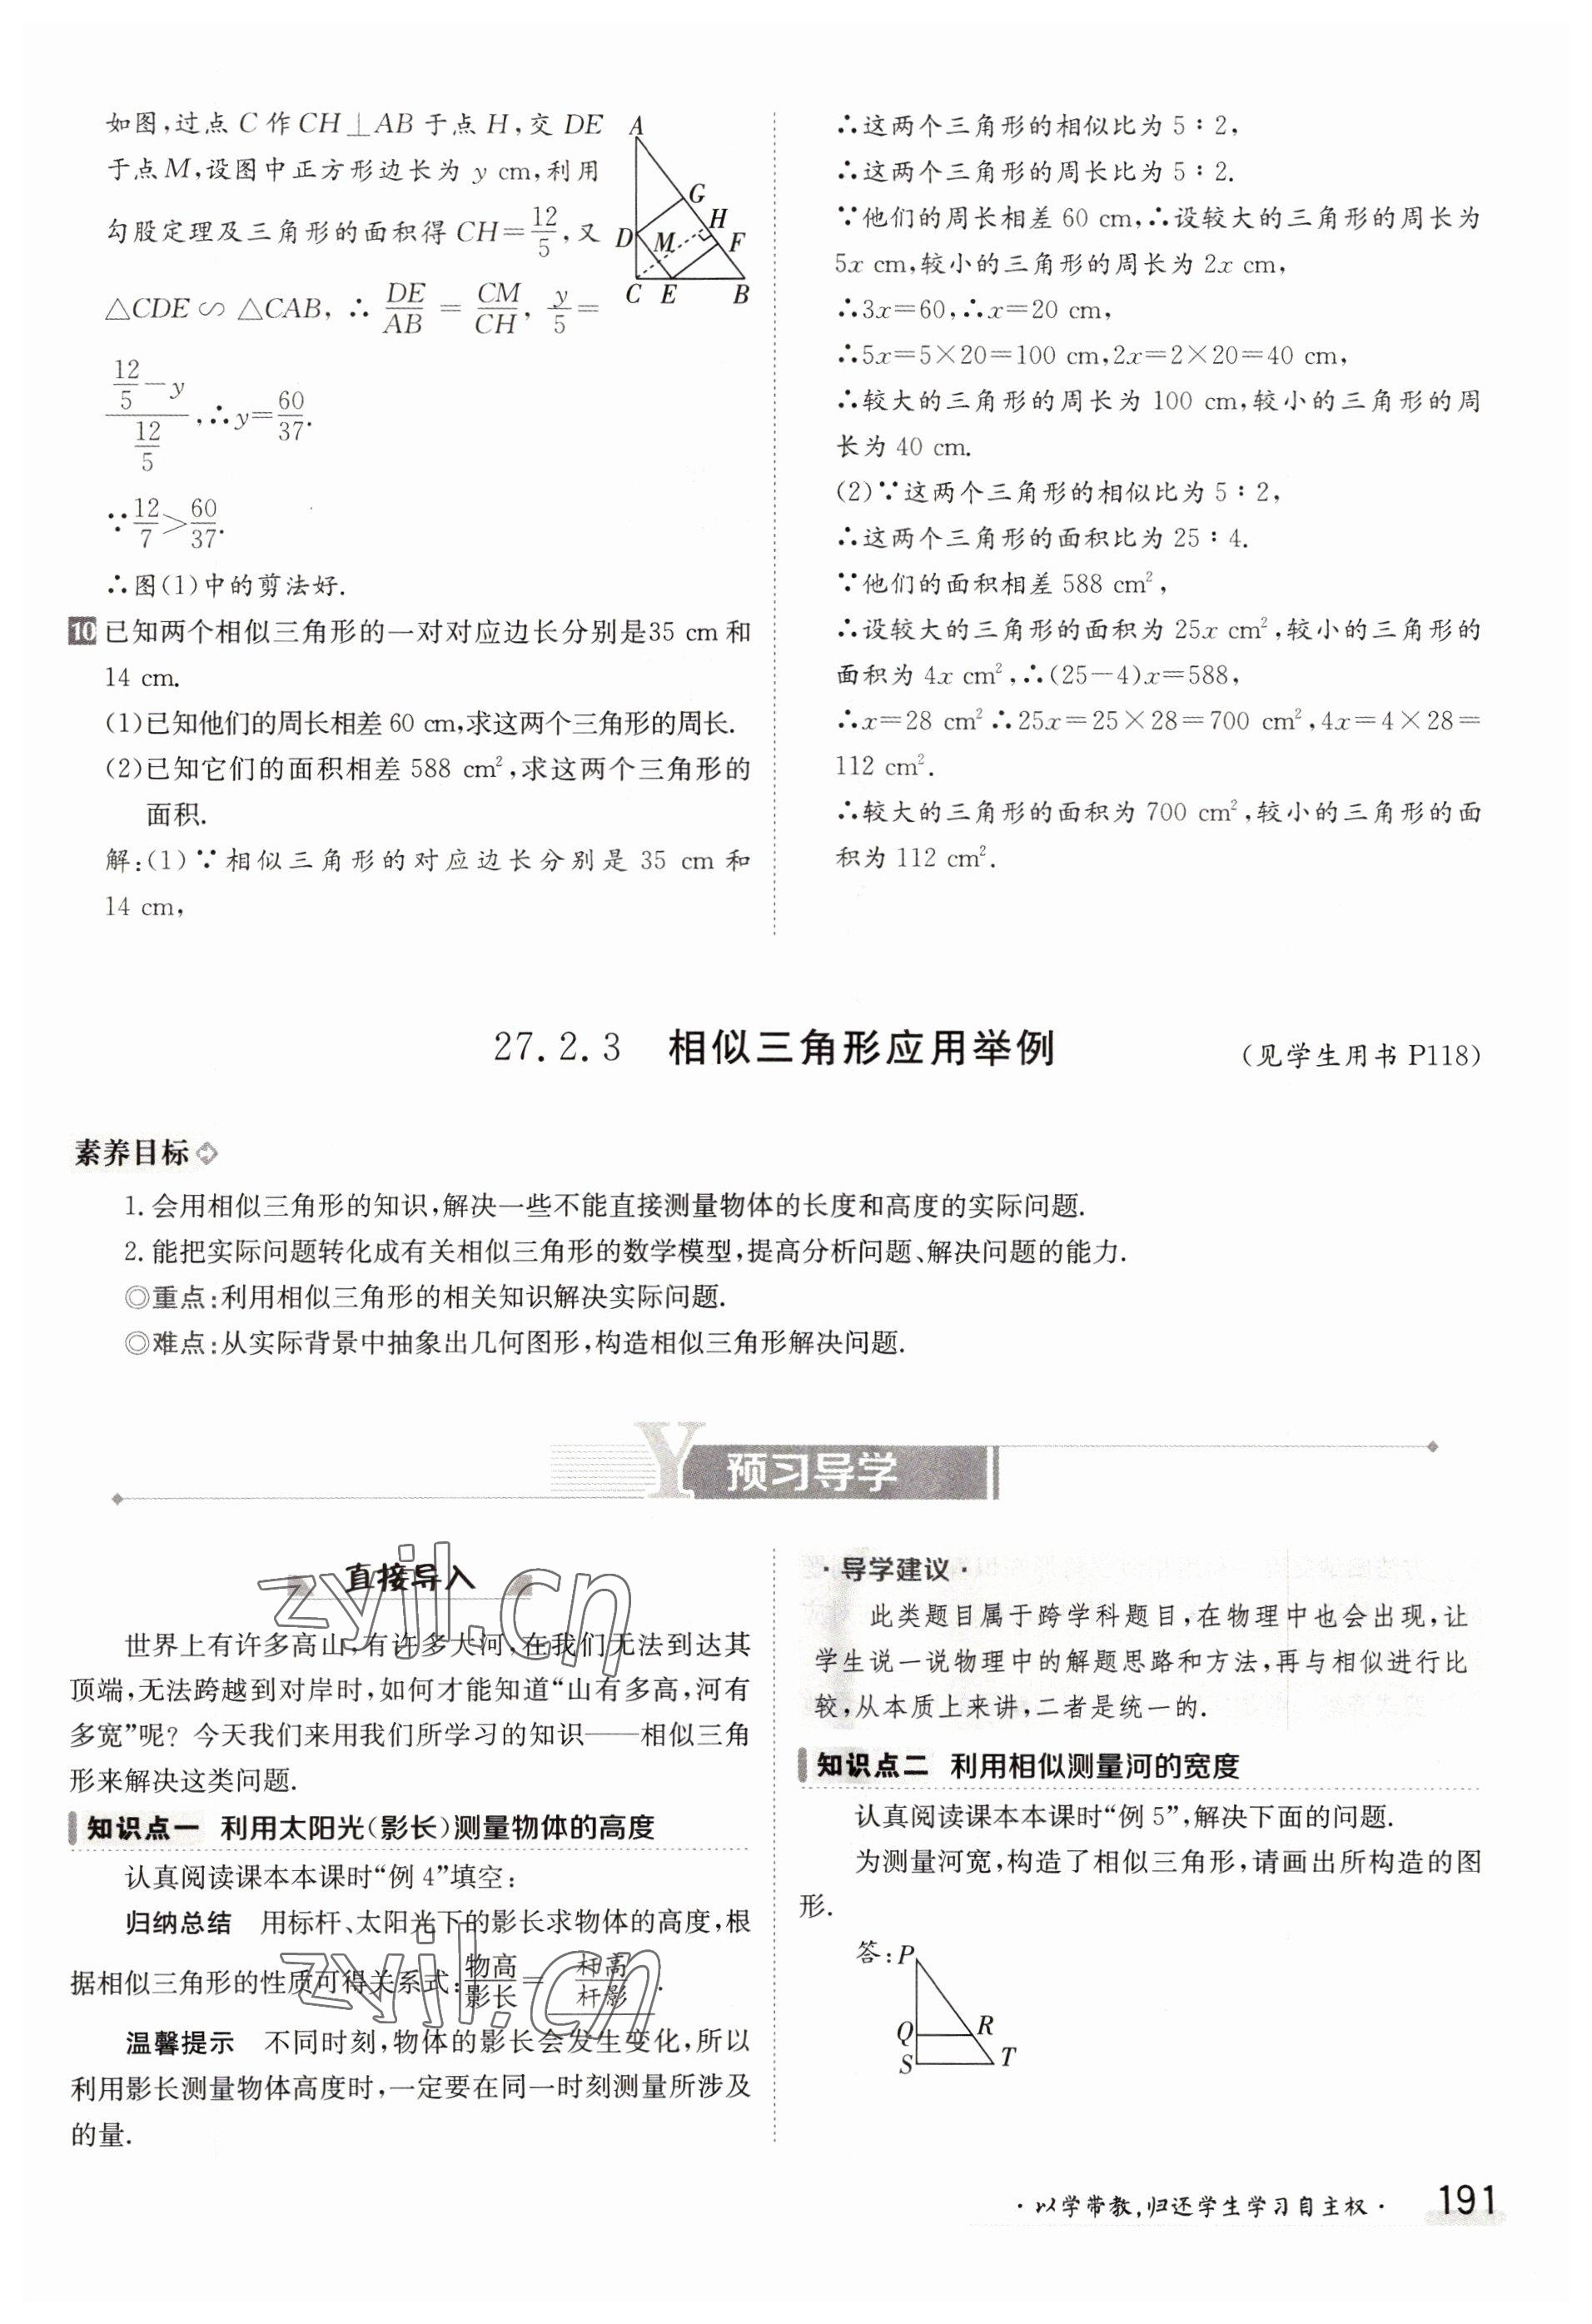 如图,过点 C 作 CH⊥AB 于点 H,交 DE
于点 M,设图中正方形边长为 y cm,利用
勾股定理及三角形的面积得 CH=12/5,又
△CDE∽△CAB,∴DE/AB=CM/CH,y/5=
(12/5-y)/(12/5),∴y=60/37.
∵12/7>60/37.
∴图(1)中的剪法好.
A
G
H
D
M
F
C
E
B
10 已知两个相似三角形的一对对应边长分别是35 cm 和
14 cm.
(1)已知他们的周长相差 60 cm,求这两个三角形的周长.
(2)已知它们的面积相差 588 cm²,求这两个三角形的
面积.
解:(1)∵相似三角形的对应边长分别是 35 cm 和
14 cm,
∴这两个三角形的相似比为 5∶2,
∴这两个三角形的周长比为 5∶2.
∵他们的周长相差 60 cm,∴设较大的三角形的周长为
5x cm,较小的三角形的周长为 2x cm,
∴3x=60,∴x=20 cm,
∴5x=5×20=100 cm,2x=2×20=40 cm,
∴较大的三角形的周长为 100 cm,较小的三角形的周
长为 40 cm.
(2)∵这两个三角形的相似比为 5∶2,
∴这两个三角形的面积比为 25∶4.
∵他们的面积相差 588 cm²,
∴设较大的三角形的面积为 25x cm²,较小的三角形的
面积为 4x cm²,∴(25-4)x=588,
∴x=28 cm²∴25x=25×28=700 cm²,4x=4×28=
112 cm².
∴较大的三角形的面积为 700 cm²,较小的三角形的面
积为 112 cm².
27.2.3 相似三角形应用举例 (见学生用书 P118)
素养目标
1. 会用相似三角形的知识,解决一些不能直接测量物体的长度和高度的实际问题.
2. 能把实际问题转化成有关相似三角形的数学模型,提高分析问题、解决问题的能力.
◎重点:利用相似三角形的相关知识解决实际问题.
◎难点:从实际背景中抽象出几何图形,构造相似三角形解决问题.
Y 预习导学
直接导入
世界上有许多高山,有许多大河,在我们无法到达其
顶端,无法跨越到对岸时,如何才能知道“山有多高,河有
多宽”呢? 今天我们来用我们所学习的知识——相似三角
形来解决这类问题.
知识点一 利用太阳光(影长)测量物体的高度
认真阅读课本本课时“例 4”填空:
归纳总结 用标杆、太阳光下的影长求物体的高度,根
据相似三角形的性质可得关系式:物高/影长=杆高/杆影.
温馨提示 不同时刻,物体的影长会发生变化,所以
利用影长测量物体高度时,一定要在同一时刻测量所涉及
的量.
zyjl.cn
zyjl.cn
·导学建议·
此类题目属于跨学科题目,在物理中也会出现,让
学生说一说物理中的解题思路和方法,再与相似进行比
较,从本质上来讲,二者是统一的.
知识点二 利用相似测量河的宽度
认真阅读课本本课时“例 5”,解决下面的问题.
为测量河宽,构造了相似三角形,请画出所构造的图
形.
答:P
Q
R
S
T
·以学带教,归还学生学习自主权· 191